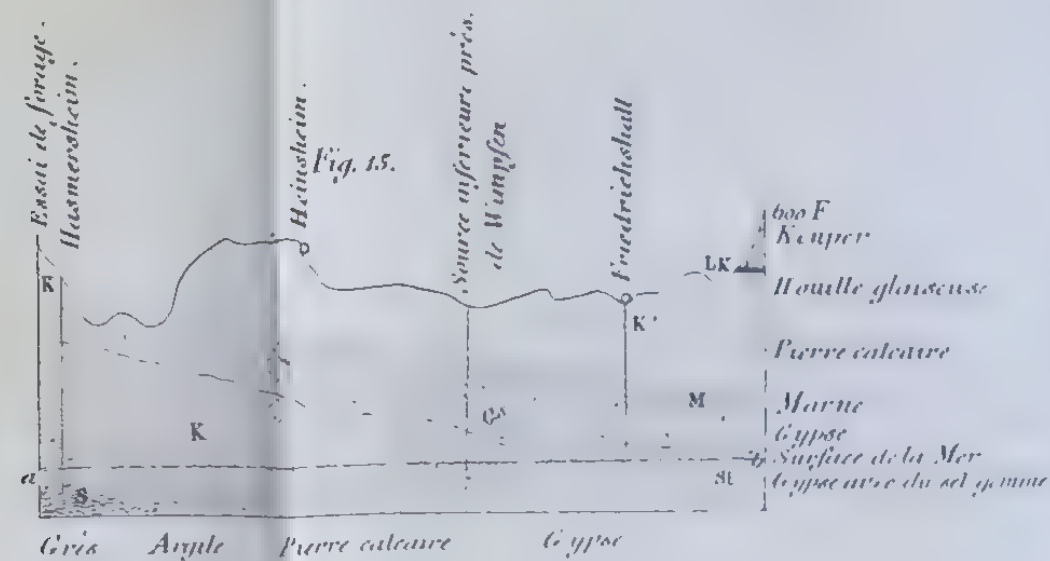 Essai de forage.
Hasmersheim.
Heinsheim.
Fig. 15.
Source inferieure près.
de Wimpfen
Friedrichshall
600 F
Keuper
LK
Houille glaiseuse
K
K'
Pierre calcaire
M
Marne
K
Gs
Gypse
a
b
Surface de la Mer
S
St
Gypse avec du sel gemme
Grès Argile Pierre calcaire Gypse